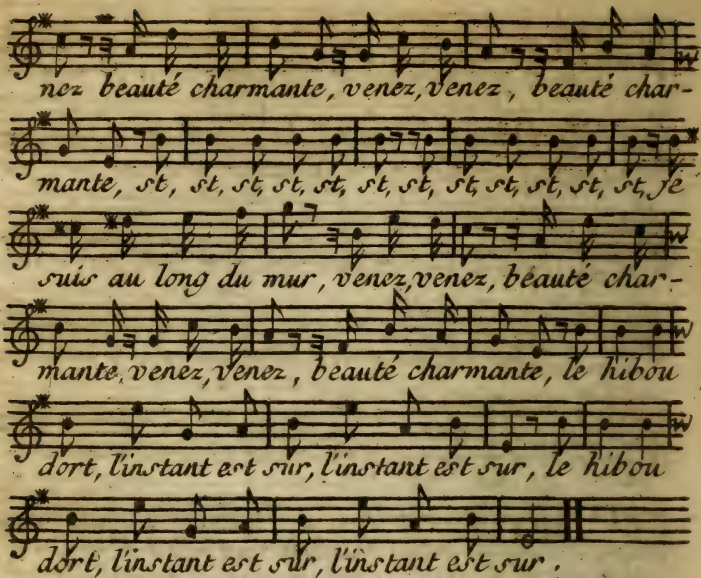 nez beauté charmante, venez, venez, beauté char-
mante, st, st, st, st, st, st, st, st, st, st, st, st, Je
suis au long du mur, venez, venez, beauté char-
mante, venez, venez, beauté charmante, le hibou
dort, l'instant est sur, l'instant est sur, le hibou
dort, l'instant est sur, l'instant est sur.